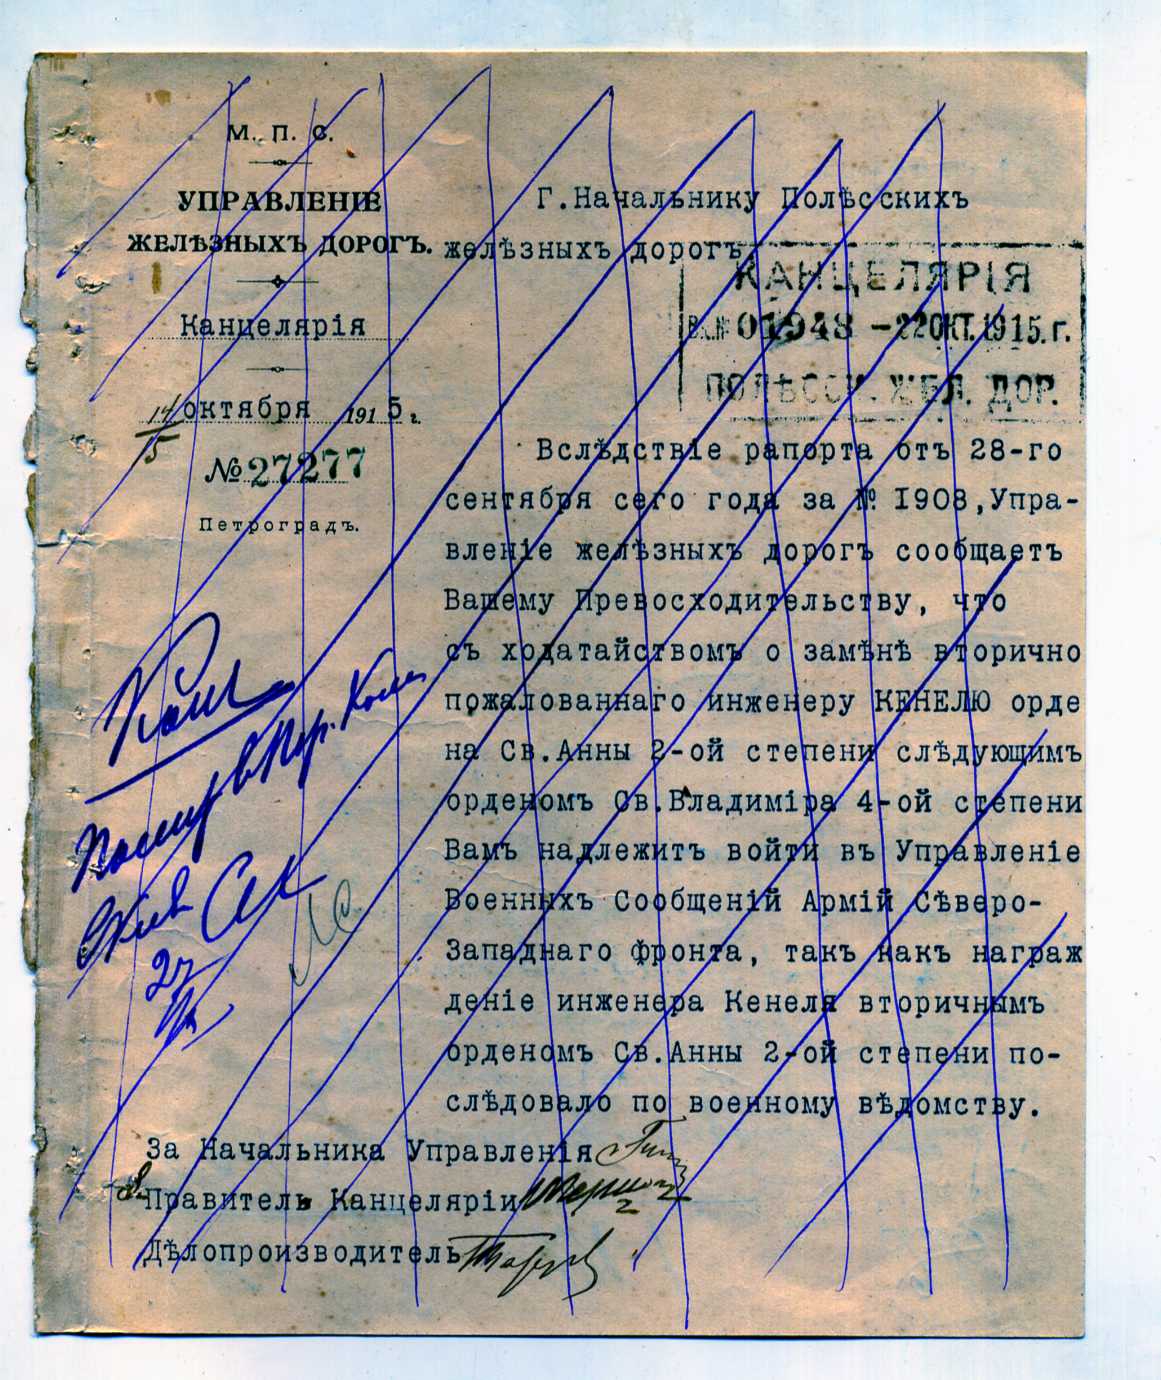 М. П. С.
УПРАВЛЕНІЕ
ЖЕЛѢЗНЫХЪ ДОРОГЪ.
Канцелярія
14/15 октября 1915 г.
№ 27277
Петроградъ.
Г.Начальнику Полѣсскихъ
желѣзныхъ дорогъ
КАНЦЕЛЯРІЯ
Вх.№ 01948 -22 ОКТ.1915.г.
ПОЛѢССК. ЖЕЛ. ДОР.
Вслѣдствіе рапорта отъ 28-го
сентября сего года за № I908,Упра-
вленіе желѣзныхъ дорогъ сообщаетъ
Вашему Превосходительству, что
съ ходатайствомъ о замѣнѣ вторично
пожалованнаго инженеру КЕНЕЛЮ орде
на Св.Анны 2-ой степени слѣдующимъ
орденомъ Св.Владиміра 4-ой степени
Вамъ надлежитъ войти въ Управленіе
Военныхъ Сообщеній Армій Сѣверо-
Западнаго фронта, такъ какъ награж
деніе инженера Кенеля вторичнымъ
орденомъ Св.Анны 2-ой степени по-
слѣдовало по военному вѣдомству.
За Начальника Управленія
Правитель Канцеляріи
Дѣлопроизводитель